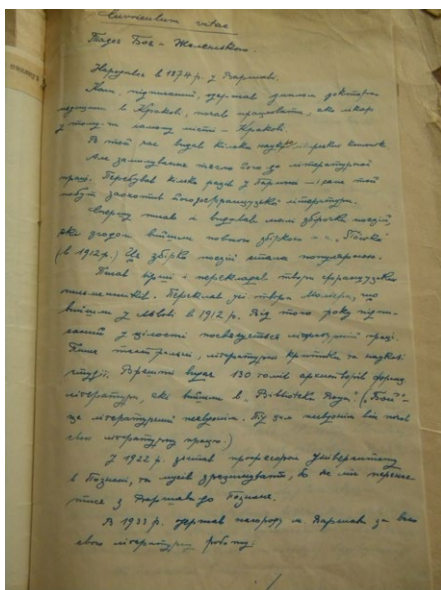 Curriculum vitae
Тадея Боя - Желенського.
Народився в 1874 р. у Варшаві.
медицини в Кракові, почав працювати, яко лікар
у тому-ж самому місті - Кракові.
В той час видав кілька наукових
Але замилування тягло його до літературної
праці. Перебував кілька разів у Парижі
побут
писав і видавав малі збірочки поезій,
які згодом вийшли повною збіркою п. н. "Слувка"
(в 1912 р.) Ця збірка поезій стала популярною.
Писав вірші і перекладав твори французьких
письменників. Переклав всі твори Мольєра, що
вийшли у Львові в 1912 р. Від того року
у цілості посвячується літературній праці.
Пише театральні, літературні критики та наукові
студії. Врешті видає 130 томів архитворів франц.
літератури, які вийшли в "Biblioteka Boya" ("Бой" -
це літературний псевдонім. Під цим псевдонімом він почав
свою літературну працю.)
У 1922 р. зістав професором Університету
в Познані, та мусів зрезигнувати, бо не міг перенес-
тися з Варшави до Познаня.
В 1933 р. одержав нагороду м. Варшави за всю
свою літературну роботу.